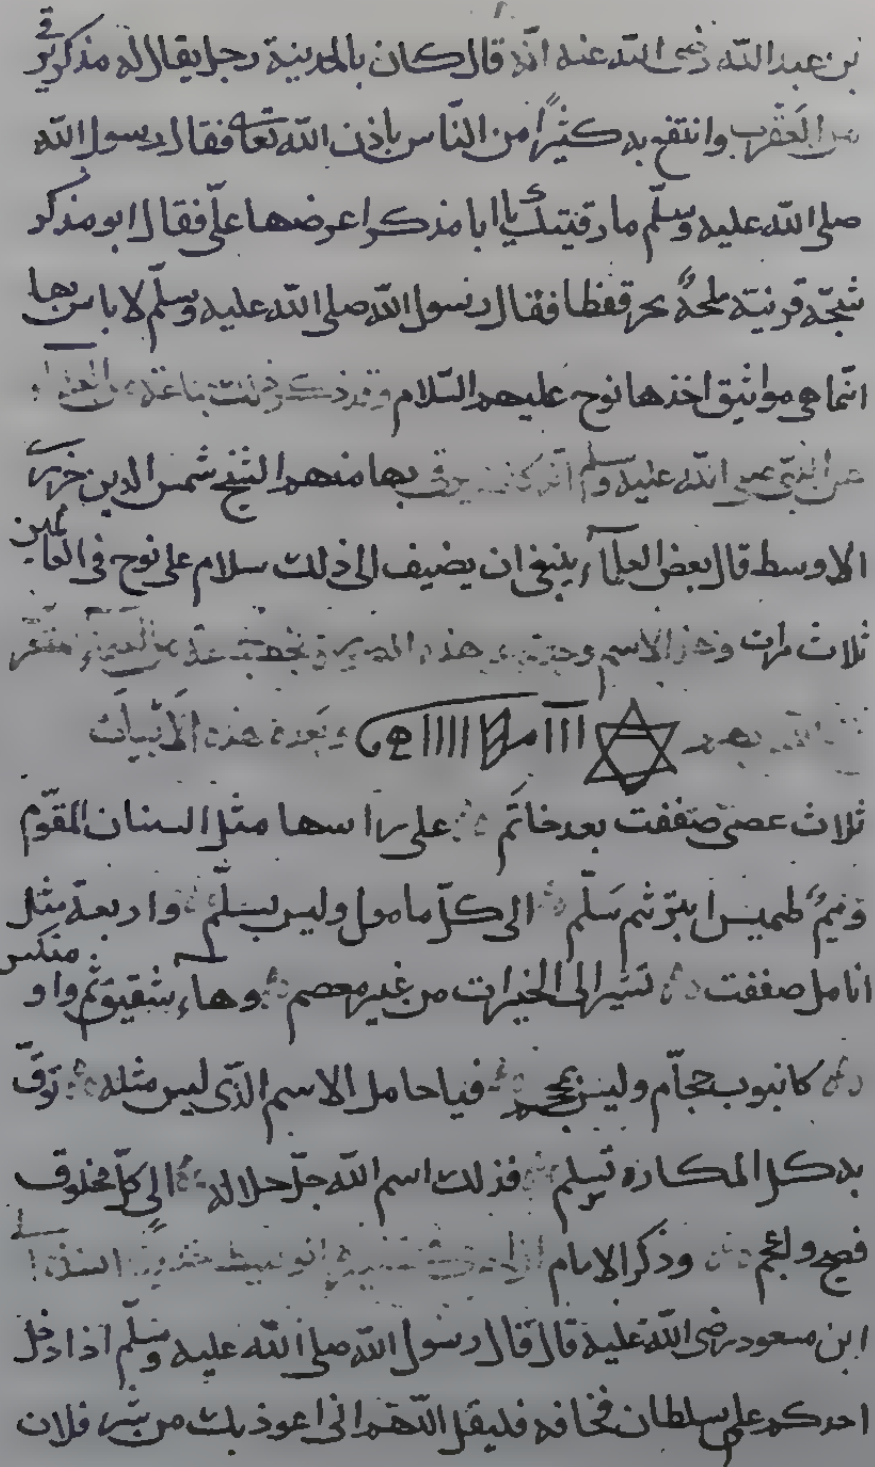 بن عبد الله رضى الله عنه انه قال كان بالمدينة رجل يقال له مذكر يرقي
من العقرب وانتفع به كثيرًا من النّاس باذن الله تعالى فقال رسول الله
صلى الله عليه وسلّم ما رقيتك يا ابا مذكر اعرضها علىّ فقال ابو مذكر
شجّة قرنيّة ملحةٌ بحر قفطا فقال رسول الله صلى الله عليه وسلّم لا باس بها
انّما هي مواثيق اخذها نوح عليهم السّلام وقد ذكر
عن النبي صلى الله عليه وسلّم انه كان يرقى بها منهم الشيخ شمس الدين
الاوسط قال بعض العلمآء ينبغى ان يضيف الى ذلك سلام على نوح فى العالمين
ثلاث مرات وهذا الاسم هذه
وبعده هذه الأبيات
ثلاث عصىّ صففت بعد خاتَم على رأسها مثل السنان المقوّم
وميمٌ طميس ابتر ثم سَلّم الى كلّ مامول وليس بسلّم واربعة مثل
انامل صففت تشير الى الخيرات من غير معصم وهاء شقيق ثم واو منكس
كانبوب حجّام وليس بمحجم فيا حامل الاسم الذى ليس مثله توقّ
به كل المكاره تسلم فذلك اسم الله جلّ جلاله الى كلّ مخلوق
فصيح واعجم وذكر الامام
ابن مسعود رضى الله عليه قال قال رسول الله صلى الله عليه وسلّم اذا دخل
احدكم على سلطان فخافه فليقل اللّهم انى اعوذ بك من شر فلان